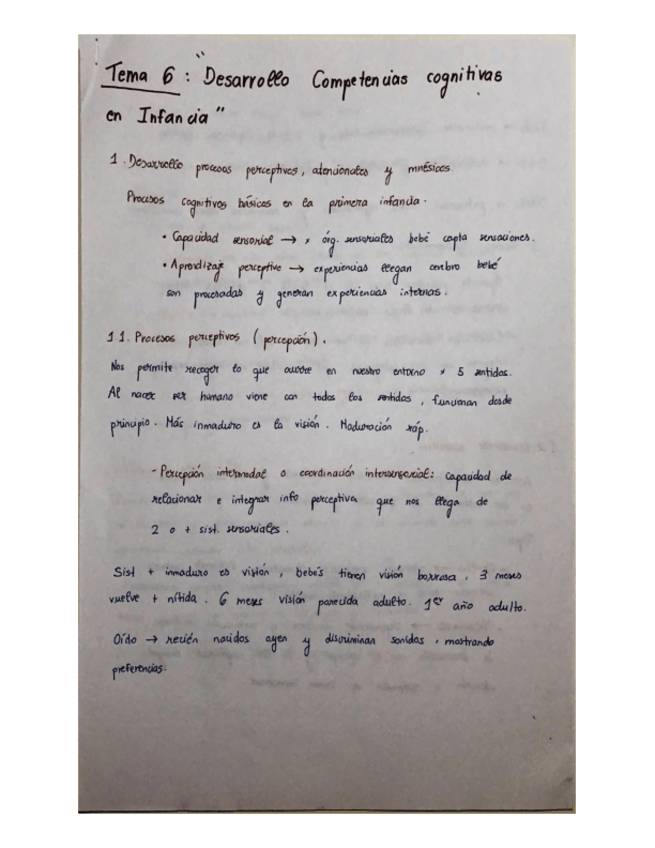 Tema 6: "Desarrollo Competencias cognitivas
en Infancia"
1. Desarrollo procesos perceptivos, atencionales y mnésicos
Procesos cognitivos básicos en la primera infancia.
• Capacidad sensorial → x órg. sensoriales bebé capta sensaciones.
• Aprendizaje perceptivo → experiencias llegan cerebro bebé
son procesadas y generan experiencias internas.
1.1. Procesos perceptivos (percepción).
Nos permite recoger lo que ocurre en nuestro entorno x 5 sentidos.
Al nacer ser humano viene con todos los sentidos, funcionan desde
principio. Más inmaduro es la visión. Maduración ráp.
- Percepción intermodal o coordinación intersensorial: capacidad de
relacionar e integrar info perceptiva que nos llega de
2 o + sist. sensoriales.
Sist + inmaduro es visión, bebés tienen visión borrosa. 3 meses
vuelve + nítida. 6 meses visión parecida adulto. 1er año adulto.
Oído → recién nacidos oyen y discriminan sonidos, mostrando
preferencias.